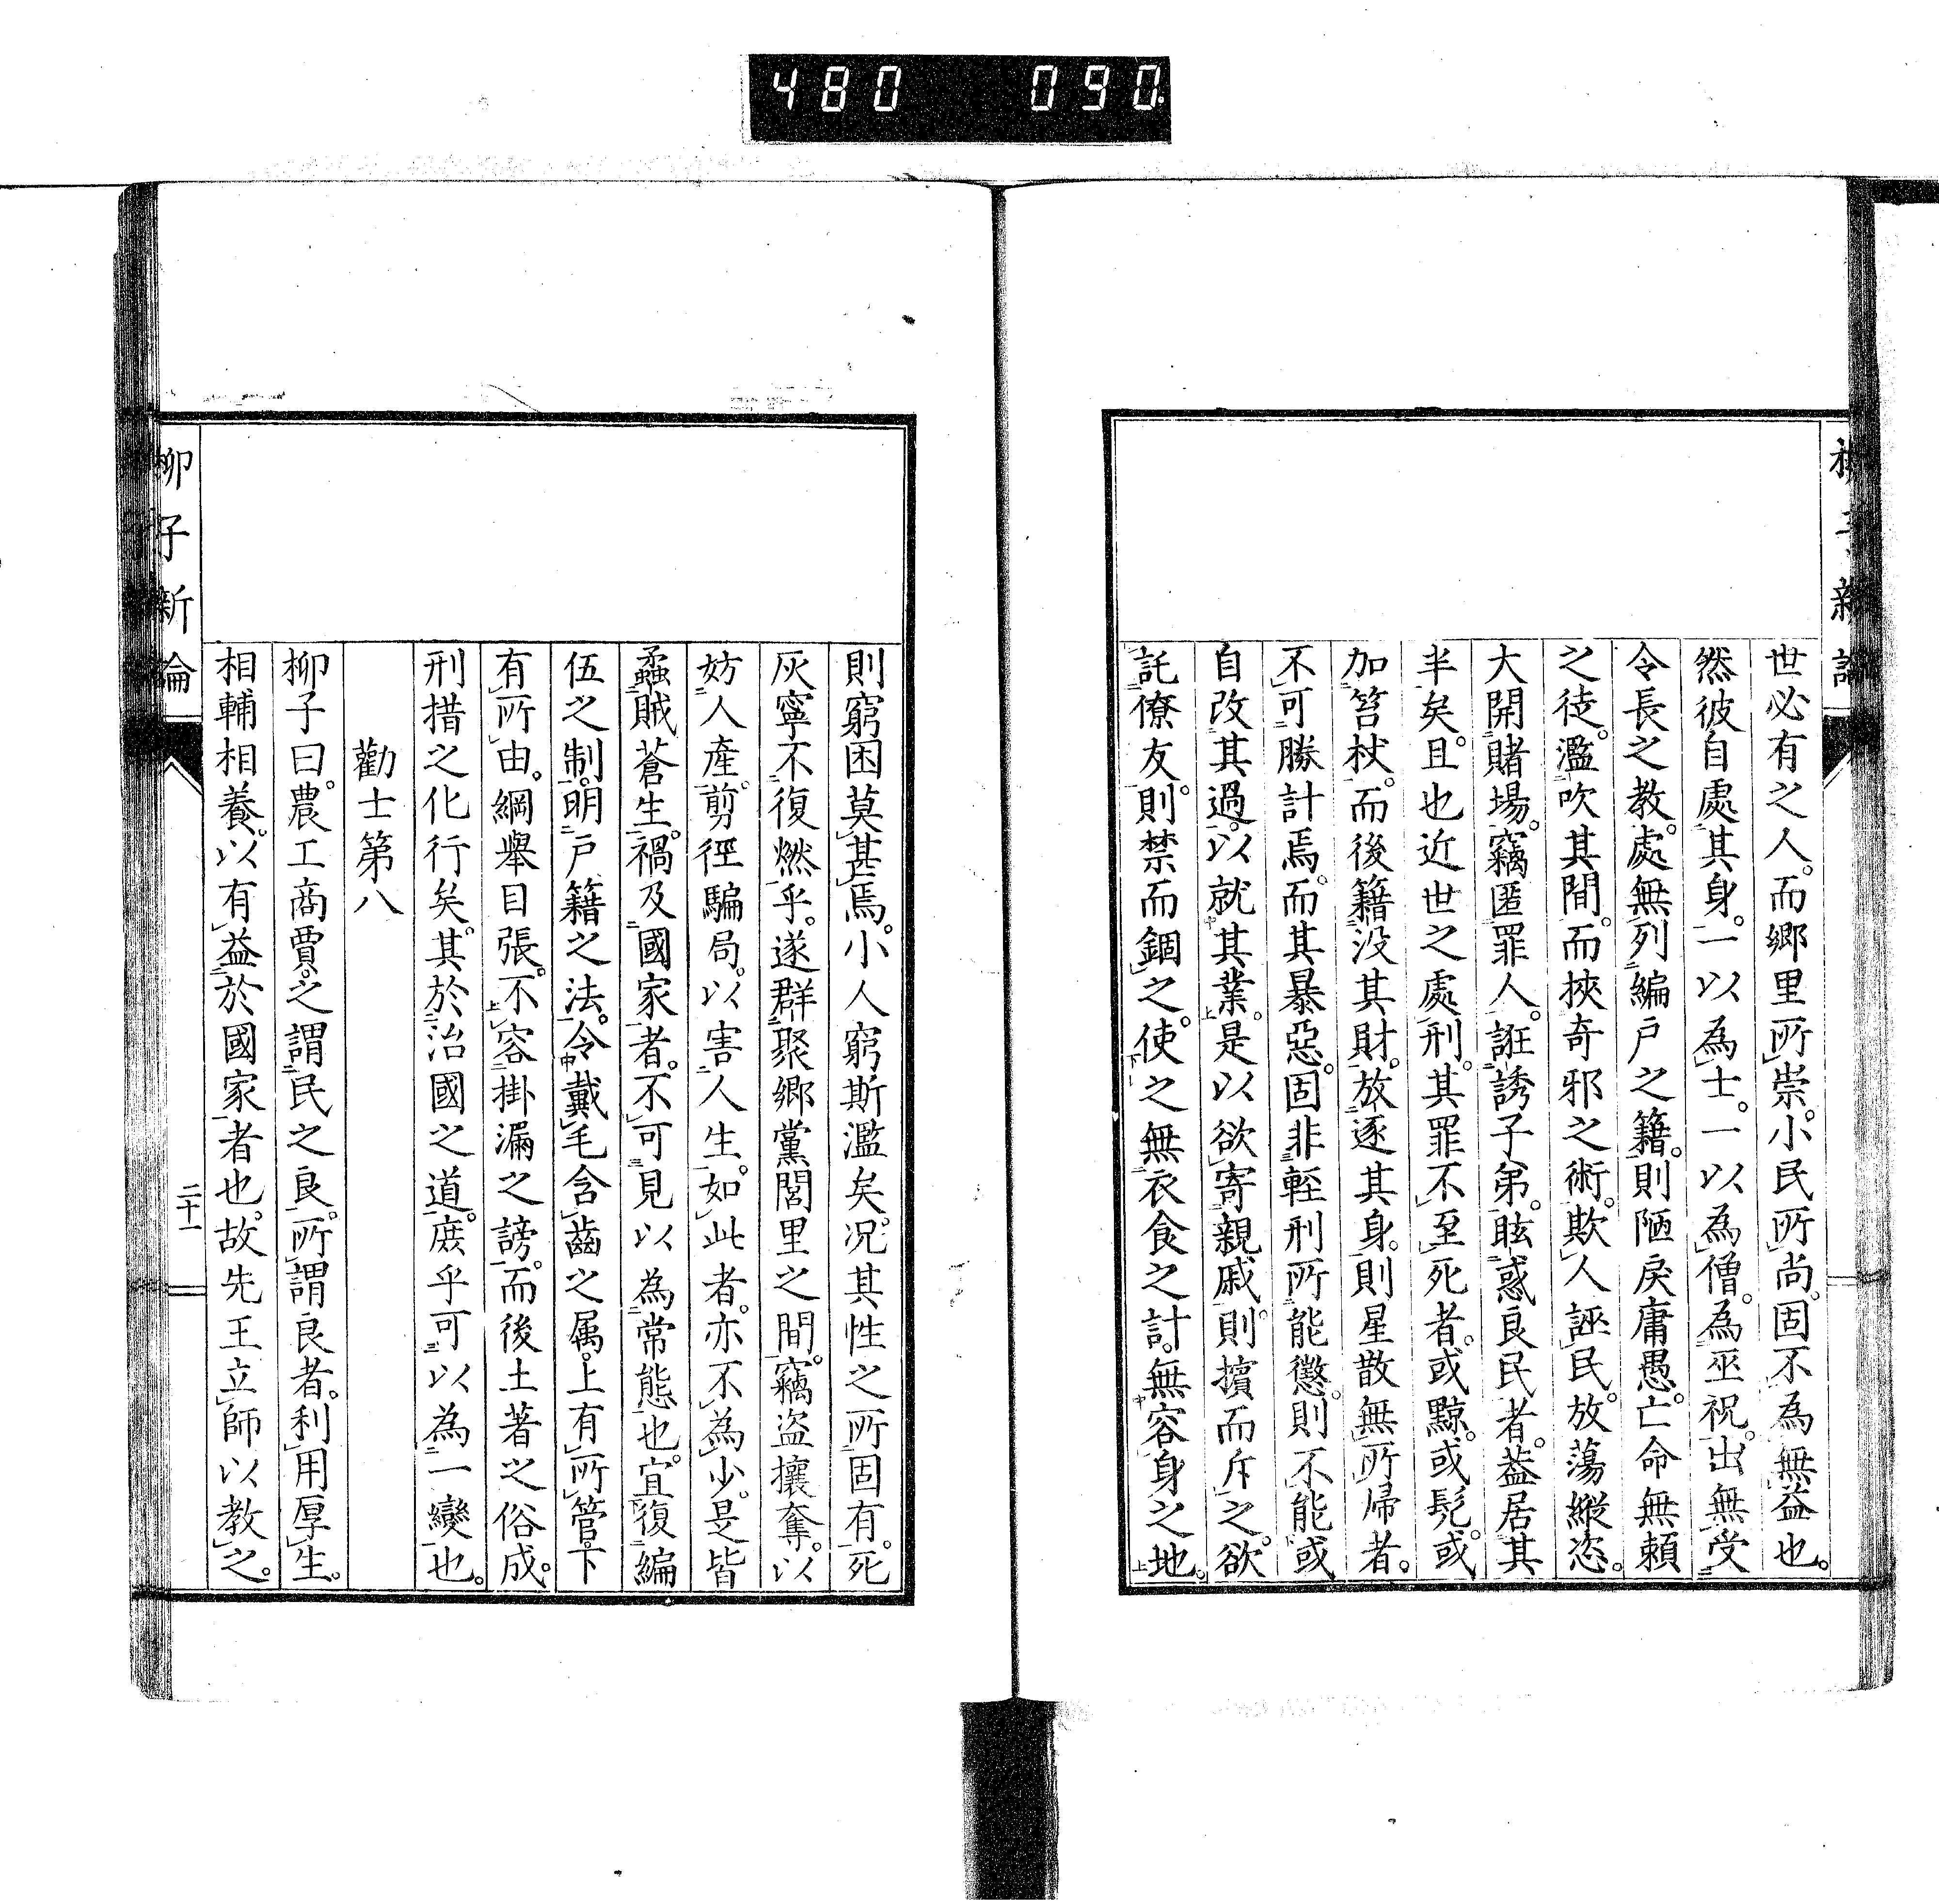 480 090
柳子新論
世必有之人。而郷里所崇。小民所尚。固不為無益也。
然彼自處其身。一以為士。一以為僧。為巫祝。出無受
令長之教。處無列編戸之籍。則陋戻庸愚。亡命無頼
之徒。濫吹其間。而挾奇邪之術。欺人誣民。放蕩縱恣。
大開賭場。竊匿罪人。誑誘子弟。眩惑良民者。葢居其
半矣。且也近世之處刑。其罪不至死者。或黥。或髡。或
加笞杖。而後籍沒其財。放逐其身。則星散無所帰者。
不可勝計焉。而其暴惡。固非輕刑所能懲。則不能或
自改其過。以就其業。是以欲寄親戚。則擯而斥之。欲
託僚友。則禁而錮之。使之無衣食之計。無容身之地。
則窮困莫甚焉。小人窮斯濫矣。况其性之所固有。死
灰寧不復燃乎。遂群聚郷黨閭里之間。竊盗攘奪。以
妨人產。剪徑騙局。以害人生。如此者。亦不為少。是皆
蟊賊蒼生。禍及國家者。不可見以為常態也。宜復編
伍之制。明戸籍之法。令戴毛含齒之属。上有所管。下
有所由。綱舉目張。不容掛漏之謗。而後土著之俗成。
刑措之化行矣。其於治國之道。庶乎可以為一變也。
勸士第八
柳子曰。農工商賈。之謂民之良。所謂良者。利用厚生。
相輔相養。以有益於國家者也。故先王立師以教之。
柳子新論
二十一